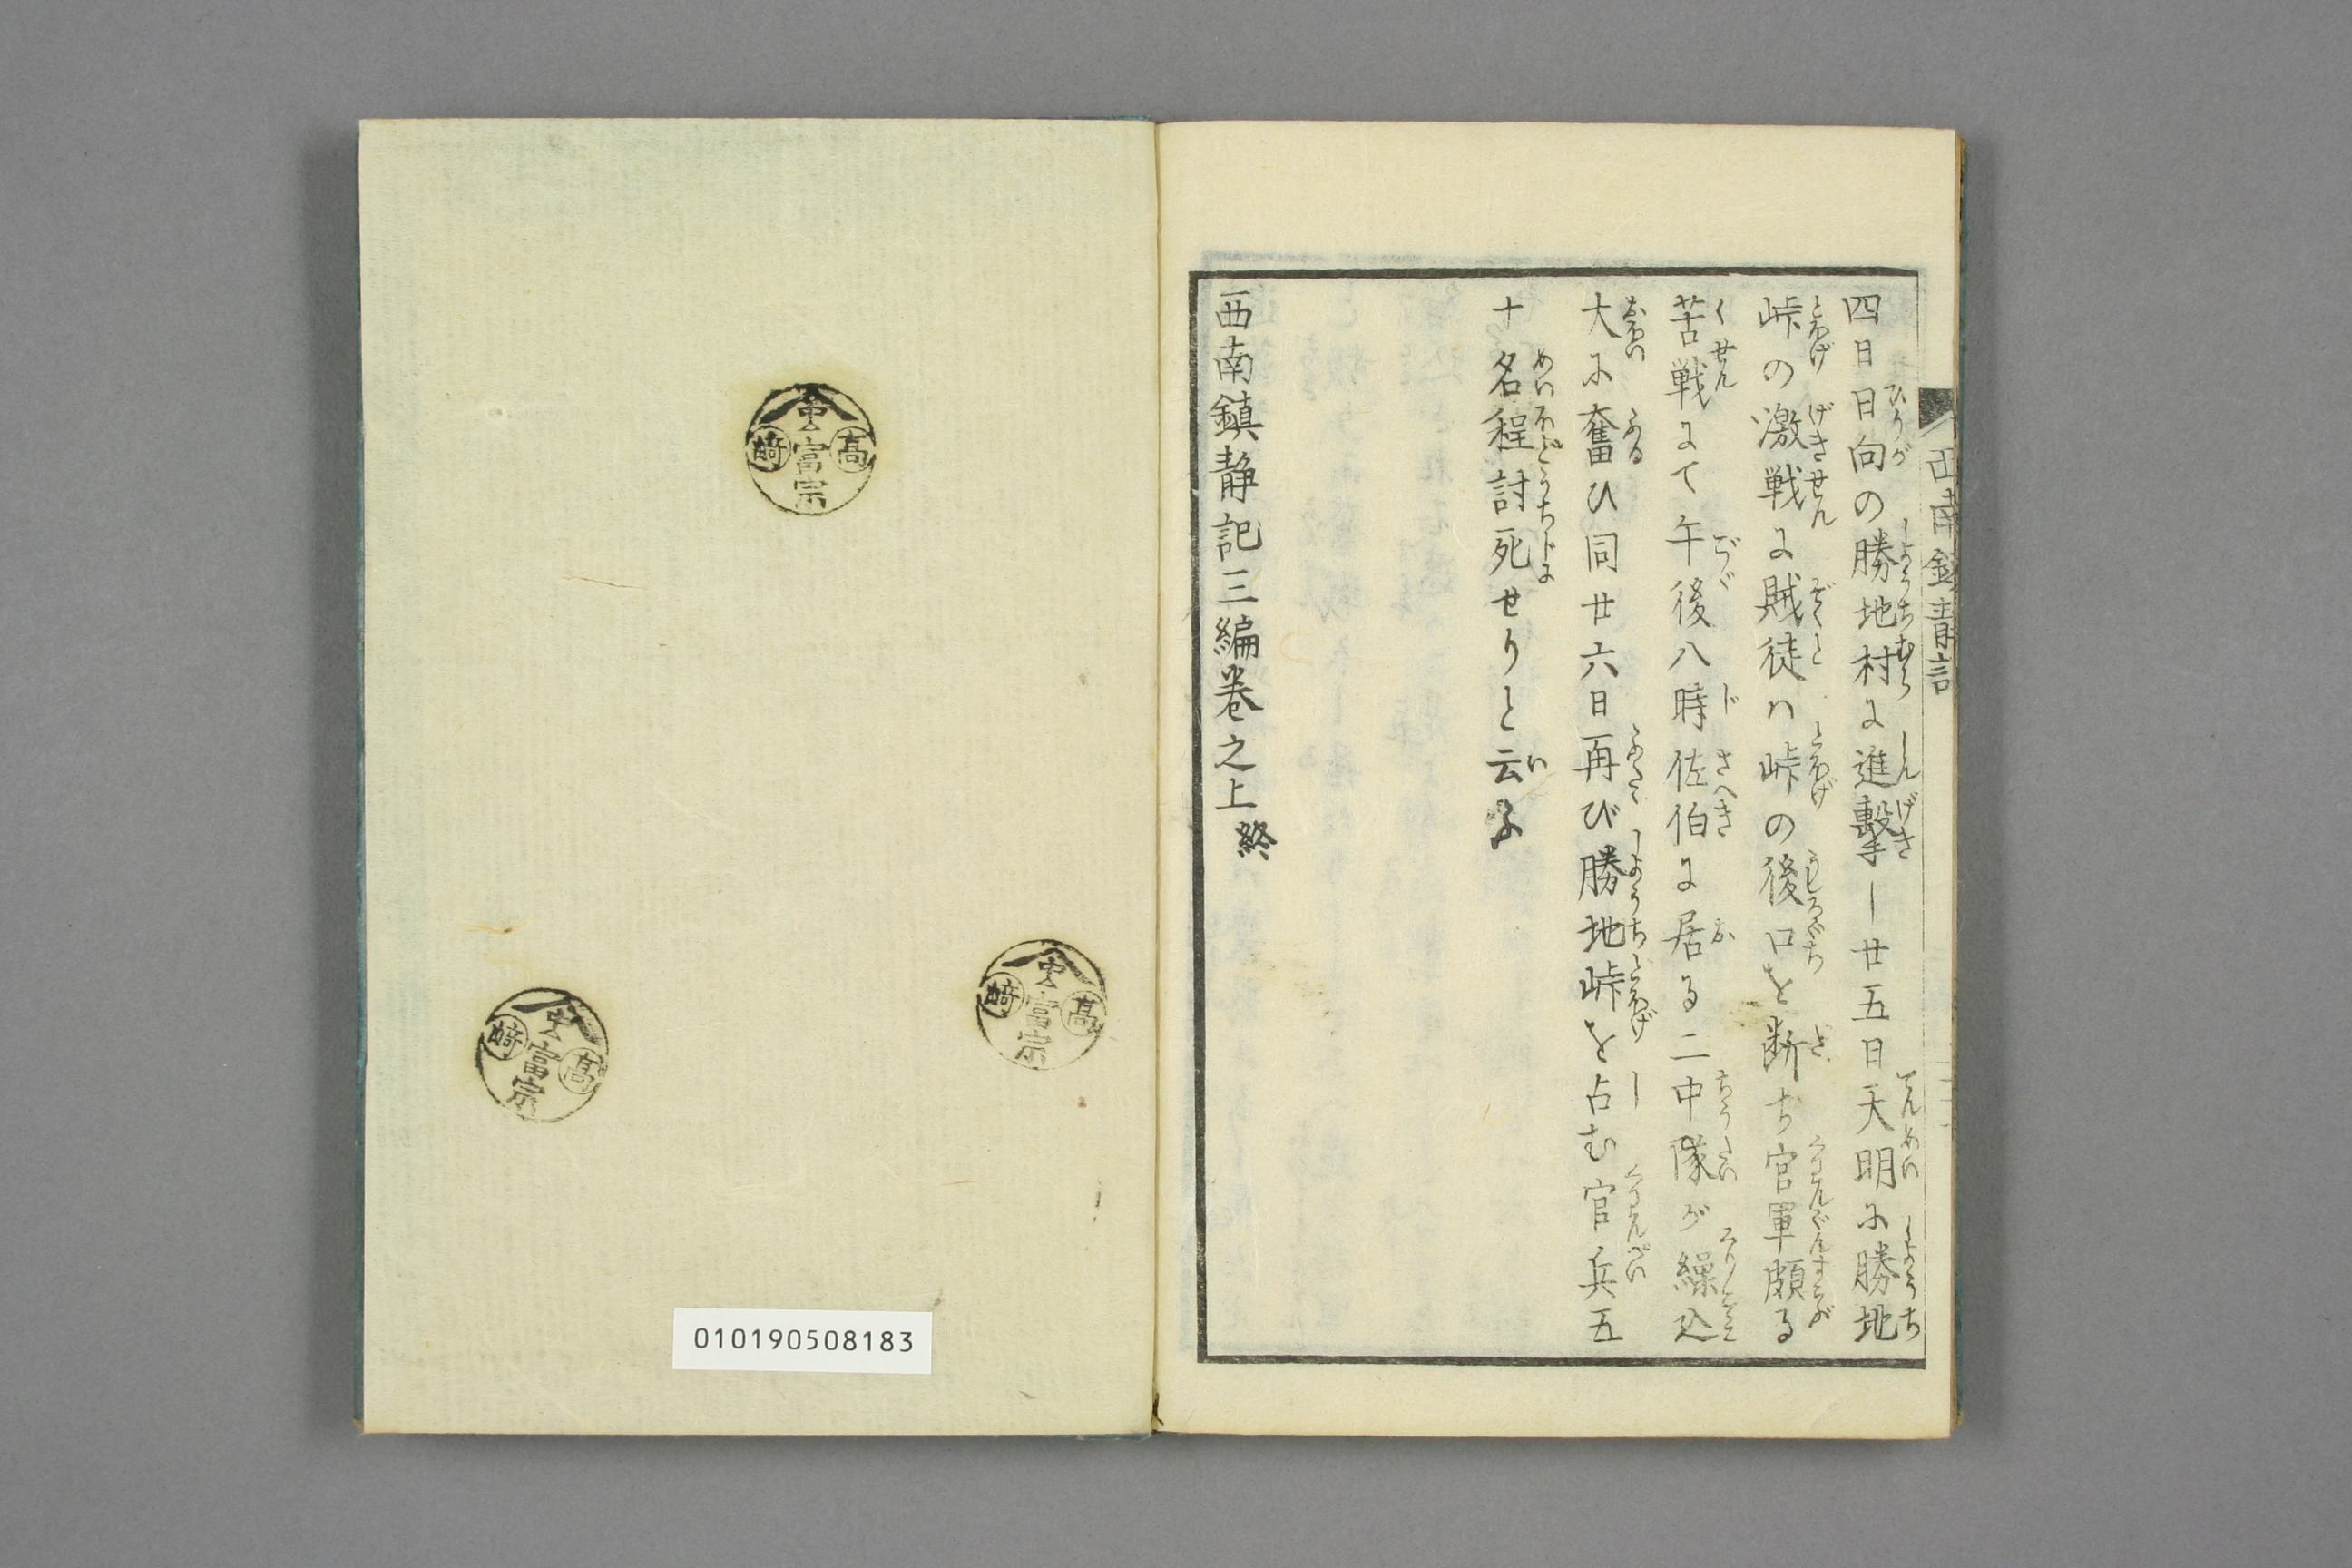 四日日向の勝地村に進撃し廿五日天明に勝地
峠の激戦に賊徒ハ峠の後口を断ち官軍頗る
苦戦にて午後八時佐伯に居る二中隊が繰込
大に奮ひ同廿六日再び勝地峠を占む官兵五
十名程討死せりと云ふ
西南鎮静記三編巻之上終
高
崎
富宗
高
崎
富宗
高
崎
富宗
010190508183